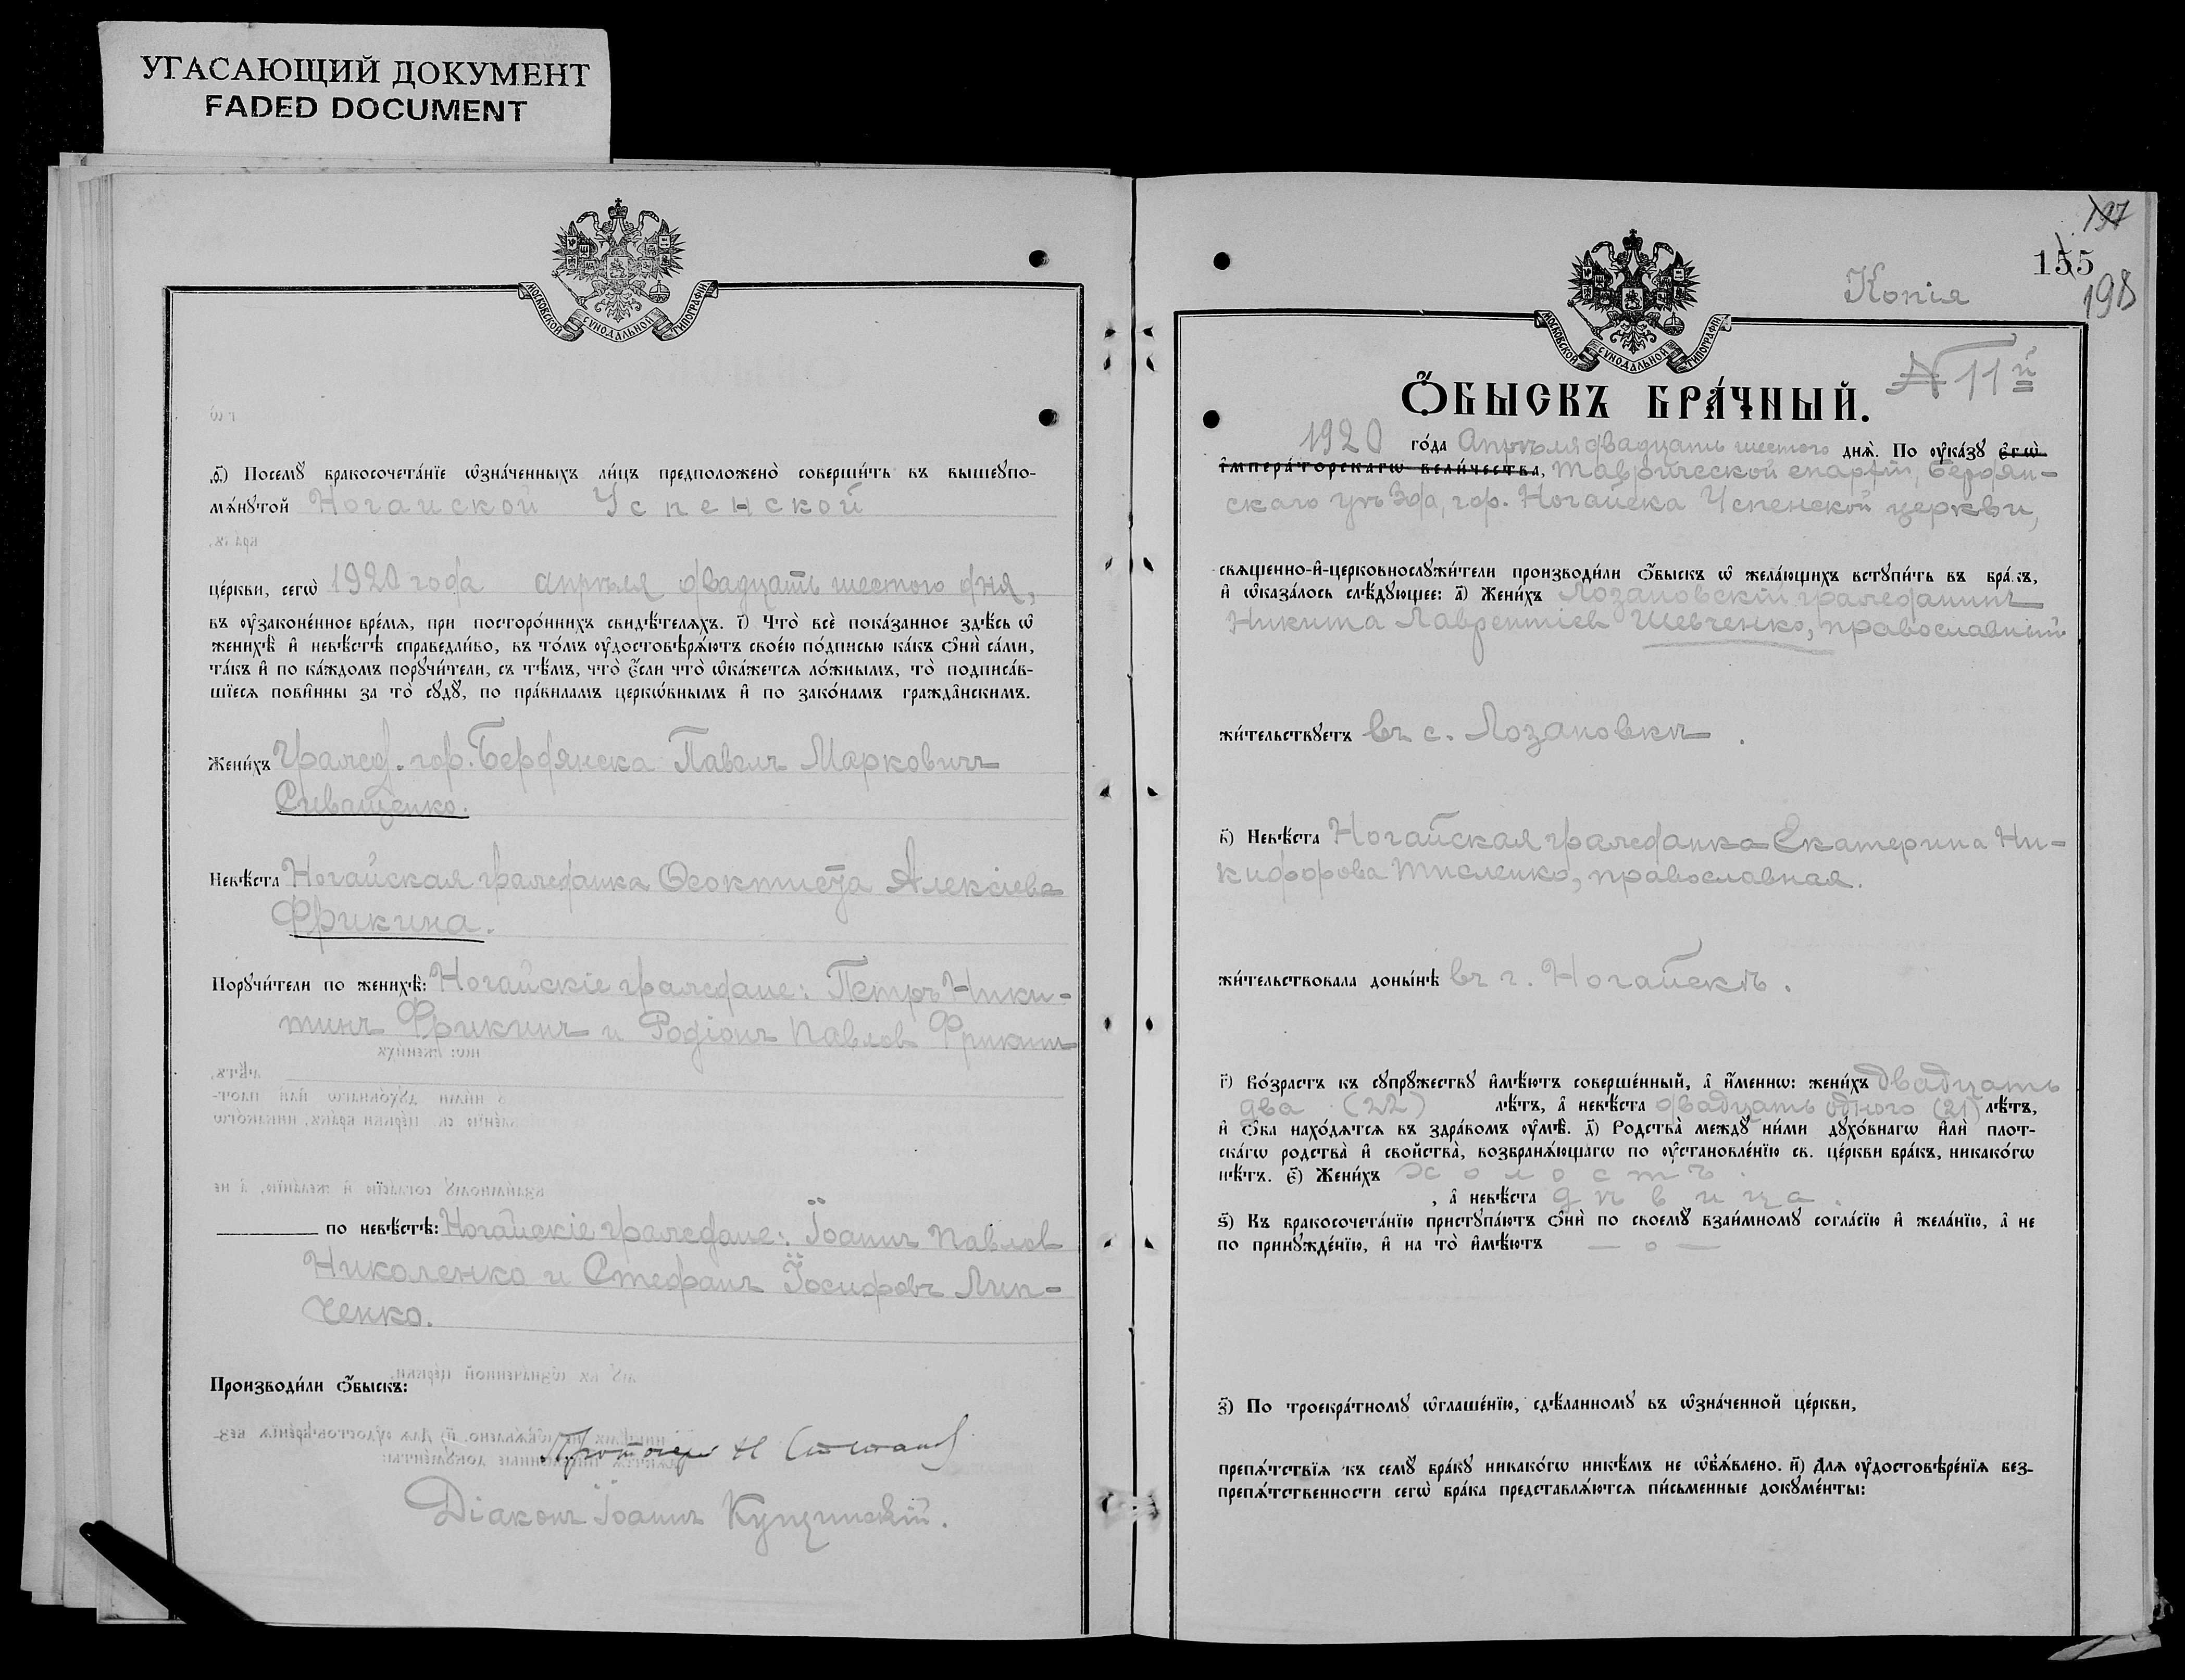 УГАСАЮЩИЙ ДОКУМЕНТ
FADED DOCUMENT
МОСКОВСКОЙ СѴНОДАЛЬНОЙ ТИПОГРАФІИ
Посемꙋ̀ бракосочета́нїе ѡ҆зна́ченныхъ ли́цъ предположено̀ соверши́ть въ вышеꙋпо-
мѧ́нꙋтой Ногайской Успенской
це́ркви, сегѡ̀ 1920 года апрѣля двадцать шестого дня,
въ ᲂу҆законе́нное вре́мѧ, при посторо́ннихъ свидѣ́телѧхъ. і҃) Что̀ всѐ пока́занное здѣ́сь ѡ҆
женихѣ̀ и҆ невѣ́стѣ справедли́во, въ то́мъ ᲂу҆достовѣрѧ́ютъ свое́ю по́дписью ка́къ ѻ҆нѝ са́ми,
та́къ и҆ по ка́ждомъ порꙋчи́тели, съ тѣ́мъ, что̀ є҆́сли что̀ ѡ҆ка́жетсѧ ло́жнымъ, то̀ подписа́в-
шїесѧ пови́нны за то̀ сꙋдꙋ̀, по пра́виламъ церкѡ́внымъ и҆ по зако́намъ гражда́нскимъ.
Жени́хъ Гражд. гор. Бердянска Павелъ Марковичъ
Сиващенко.
Невѣ́ста Ногайская гражданка Ѳеоктиста Алексіева
Фрикина.
Порꙋчи́тели по женихѣ̀: Ногайскіе граждане: Петръ Ники-
тинъ Фрикинъ и Родіонъ Павлов Фрикин
по невѣ́стѣ: Ногайскіе граждане: Іоаннъ Павлов
Николенко и Стефанъ Іосифовъ Лип-
ченко.
Производи́ли ѻ҆́быскъ:
Протоіерей Н
Діаконъ Іоаннъ Кущинскій.
197
155
198
Копія
МОСКОВСКОЙ СѴНОДАЛЬНОЙ ТИПОГРАФІИ
N 11й
Ѻ҆́БЫСКЪ БРА́ЧНЫЙ.
1920 го́да Апрѣля двадцать шестого днѧ̀. По ᲂу҆ка́зꙋ є҆гѡ̀
і҆мпера́торскагѡ вели́чества, Таврической епархіи, Бердян-
скаго уѣзда, гор. Ногайска Успенской церкви,
свѧще́нно-и҆-церковнослꙋжи́тели производи́ли ѻ҆́быскъ ѡ҆ жела́ющихъ встꙋпи́ть въ бра́къ,
и҆ ѡ҆каза́лось слѣ́дꙋющее: а҃) Жени́хъ Лозановскій гражданинъ
Никита Лаврентіев Шевченко, православный
жи́тельствꙋетъ въ с. Лозановкѣ.
в҃) Невѣ́ста Ногайская гражданка Екатерина Ни-
кифорова Тисленко, православная.
жи́тельствовала доны́нѣ въ г. Ногайскѣ.
г҃) Во́зрастъ къ сꙋпрꙋ́жествꙋ и҆мѣ́ютъ соверше́нный, а҆ и҆́меннѡ: жени́хъ двадцать
два (22) лѣ́тъ, а҆ невѣ́ста двадцать одного (21) лѣ́тъ,
и҆ ѻ҆́ба нахо́дѧтсѧ въ здра́вомъ ᲂу҆мѣ̀. д҃) Родства̀ междꙋ̀ ни́ми дꙋхо́внагѡ и҆лѝ плот-
ска́гѡ родства̀ и҆ свойства̀, возбранѧ́ющагѡ по ᲂу҆становле́нїю св. це́ркви бра́къ, никако́гѡ
нѣ́тъ. є҃) Жени́хъ холостъ.
, а҆ невѣ́ста дѣвица.
ѕ҃) Къ бракосочета́нїю пристꙋпа́ютъ ѻ҆нѝ по своемꙋ̀ взаи́мномꙋ согла́сїю и҆ жела́нїю, а҆ не
по принꙋжде́нїю, и҆ на то̀ и҆мѣ́ютъ — о —
з҃) По троекра́тномꙋ ѡ҆глаше́нїю, сдѣ́ланномꙋ въ ѡ҆зна́ченной це́ркви,
препѧ́тствїѧ къ семꙋ̀ бра́кꙋ никако́гѡ никѣ́мъ не ѡ҆б̾ѧ́влено. и҃) Длѧ ᲂу҆достовѣре́нїѧ без-
препѧ́тственности сегѡ̀ бра́ка представлѧ́ютсѧ пи́сьменные докꙋме́нты: